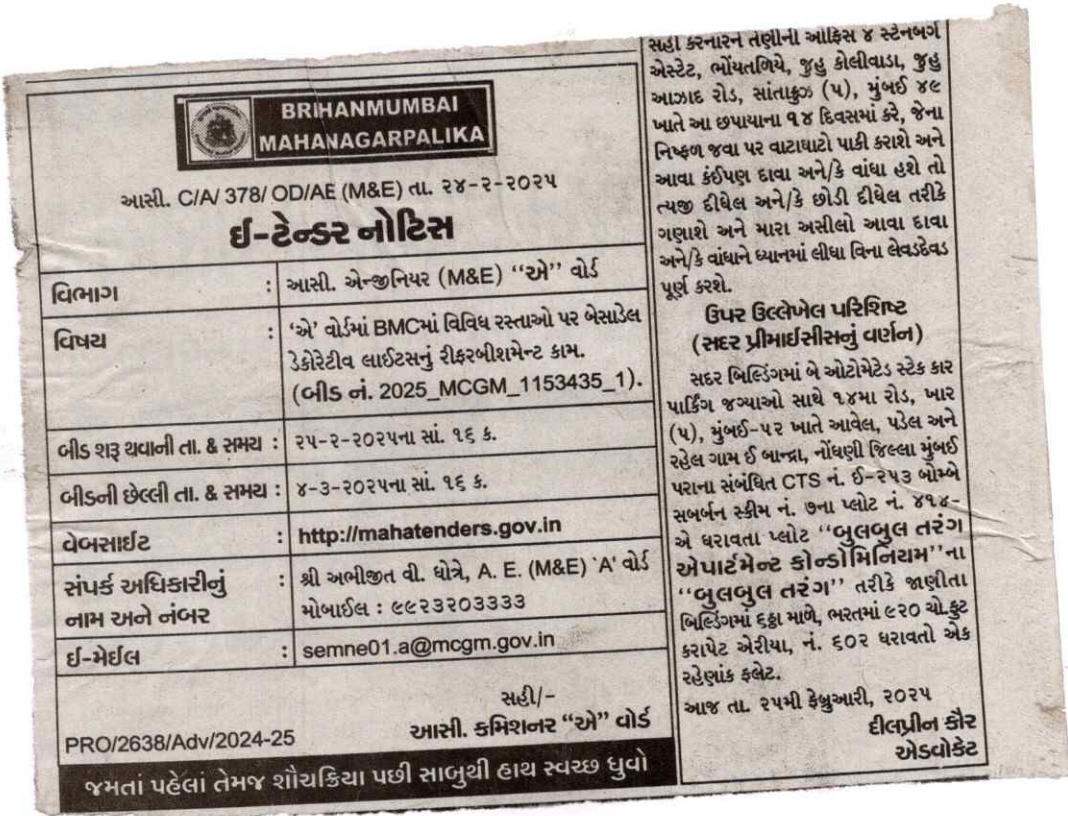 BRIHANMUMBAI
MAHANAGARPALIKA
આસી. C/A/ 378/ OD/AE (M&E) તા. ૨૪-૨-૨૦૨૫
ઈ-ટેન્ડર નોટિસ
વિભાગ : આસી. એન્જીનિયર (M&E) “એ” વોર્ડ
વિષય : ‘એ’ વોર્ડમાં BMCમાં વિવિધ રસ્તાઓ પર બેસાડેલ
ડેકોરેટીવ લાઈટસનું રીફરબીશમેન્ટ કામ.
(બીડ નં. 2025_MCGM_1153435_1).
બીડ શરૂ થવાની તા. & સમય : ૨૫-૨-૨૦૨૫ના સાં. ૧૬ ક.
બીડની છેલ્લી તા. & સમય : ૪-૩-૨૦૨૫ના સાં. ૧૬ ક.
વેબસાઈટ : http://mahatenders.gov.in
સંપર્ક અધિકારીનું : શ્રી અભીજીત વી. ધોત્રે, A. E. (M&E) `A' વોર્ડ
નામ અને નંબર મોબાઈલ : ૯૯૨૩૨૦૩૩૩૩
ઈ-મેઈલ : semne01.a@mcgm.gov.in
સહી/-
PRO/2638/Adv/2024-25 આસી. કમિશનર “એ” વોર્ડ
જમતાં પહેલાં તેમજ શૌચક્રિયા પછી સાબુથી હાથ સ્વચ્છ ધુવો
સહી કરનારને તેણીની ઓફિસ ૪ સ્ટેનબર્ગ
એસ્ટેટ, ભોંયતળિયે, જુહુ કોલીવાડા, જુહુ
આઝાદ રોડ, સાંતાક્રુઝ (પ), મુંબઈ ૪૯
ખાતે આ છપાયાના ૧૪ દિવસમાં કરે, જેના
નિષ્ફળ જવા પર વાટાઘાટો પાકી કરાશે અને
આવા કંઈપણ દાવા અને/કે વાંધા હશે તો
ત્યજી દીધેલ અને/કે છોડી દીધેલ તરીકે
ગણાશે અને મારા અસીલો આવા દાવા
અને/કે વાંધાને ધ્યાનમાં લીધા વિના લેવડદેવડ
પૂર્ણ કરશે.
ઉપર ઉલ્લેખેલ પરિશિષ્ટ
(સદર પ્રીમાઈસીસનું વર્ણન)
સદર બિલ્ડિંગમાં બે ઓટોમેટેડ સ્ટેક કાર
પાર્કિંગ જગ્યાઓ સાથે ૧૪મા રોડ, ખાર
(પ), મુંબઈ-૫૨ ખાતે આવેલ, પડેલ અને
રહેલ ગામ ઈ બાન્દ્રા, નોંધણી જિલ્લા મુંબઈ
પરાના સંબંધિત CTS નં. ઈ-૨૫૩ બોમ્બે
સબર્બન સ્કીમ નં. ૭ના પ્લોટ નં. ૪૧૪-
એ ધરાવતા પ્લોટ “બુલબુલ તરંગ
એપાર્ટમેન્ટ કોન્ડોમિનિયમ”ના
“બુલબુલ તરંગ” તરીકે જાણીતા
બિલ્ડિંગમાં ૬ઠ્ઠા માળે, ભરતમાં ૯૨૦ ચો.ફુટ
કારપેટ એરીયા, નં. ૬૦૨ ધરાવતો એક
રહેણાંક ફલેટ.
આજ તા. ૨૫મી ફેબ્રુઆરી, ૨૦૨૫
દીલપ્રીન કૌર
એડવોકેટ